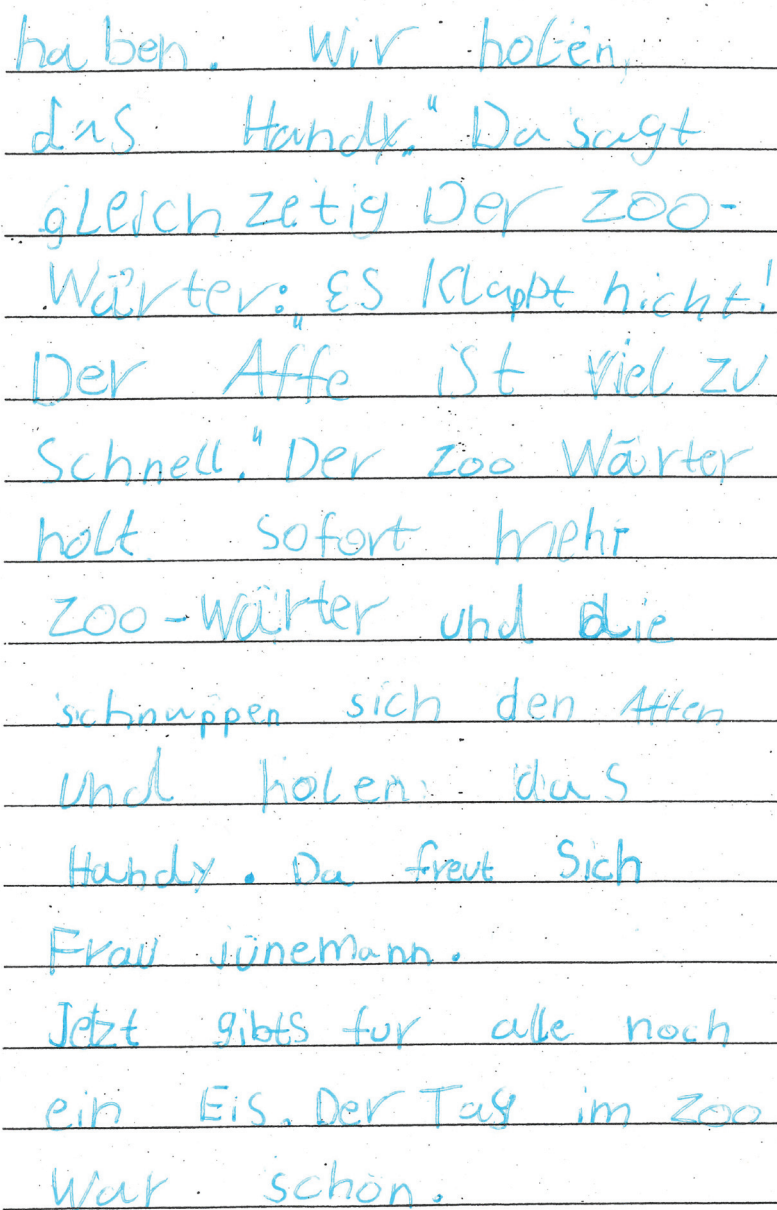 haben. Wir holen
das Handy." Da sagt
gleich zetig Der Zoo-
Wärter: „Es klappt nicht!
Der Affe ist viel zu
Schnell." Der Zoo Wärter
holt sofort mehr
Zoo-Wärter und die
schnappen sich den Affen
und holen das
Handy. Da freut Sich
Frau Jünemann.
Jetzt gibts fur alle noch
ein Eis. Der Tag im Zoo
War schön.